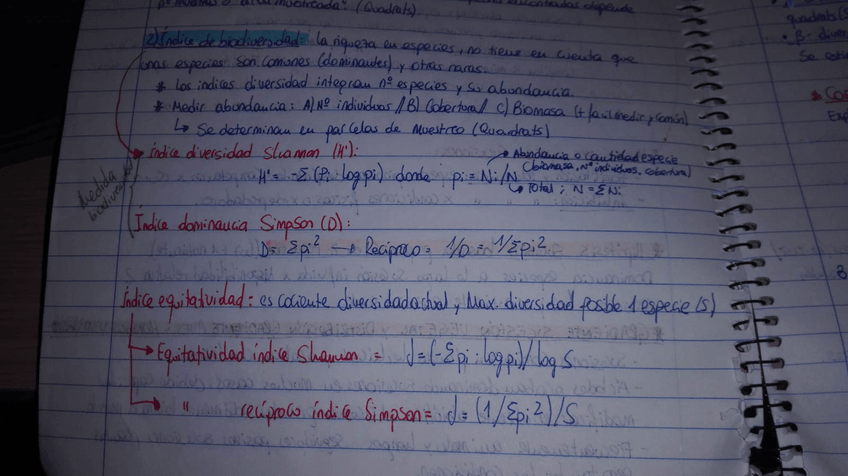 (Quadrats)
2) Índice de biodiversidad: la riqueza en especies, no tiene en cuenta que
unas especies son comunes (dominantes) y otras raras.
* Los indices diversidad integran nº especies y su abundancia.
* Medir abundancia: A) Nº individuos / B) Cobertura / C) Biomasa (+ facil medir y común)
↳ Se determinan en parcelas de muestreo (Quadrats)
Índice diversidad Shannon (H'):
→ Abundancia o cantidad especie
(biomasa, Nº individuos, cobertura)
H' = -Σ (Pi · log pi) donde ; pi = Ni/N
↳ Total ; N = Σ Ni
Medida
biodiversidad
Índice dominancia Simpson (D):
D = Σpi² → Recíproco = 1/D = 1/Σpi²
Índice equitatividad: es cociente diversidad actual, Max. diversidad posible 1 especie (S)
→ Equitatividad índice Shannon = J = (-Σpi · log pi) / log S
→ " recíproco índice Simpson = J = (1/Σpi²)/S
quadrats
β - diver
Se